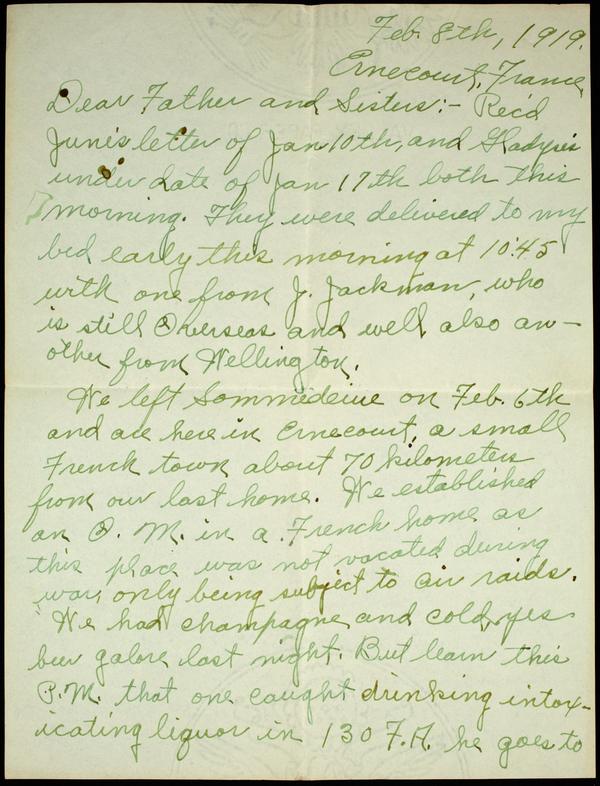 Feb. 8th, 1919.
Ernecourt, France
Dear Father and Sisters:- Recd
June's letter of Jan 10th, and Gladyse's
under date of Jan 17th both this
morning. They were delivered to my
bed early this morning at 10:45
with one from J. Jackman, who
is still Overseas and well, also an-
other from Wellington.
We left Sommedeiue on Feb. 6th
and are here in Ernecourt, a small
French town about 70 kilometers
from our last home. We established
an O. M. in a French home as
this place was not vacated during
war, only being subject to air raids.
We had champagne and cold, yes
beer galore last night. But learn this
P.M. that one caught drinking intox-
icating liquor in 130 F.A. he goes to